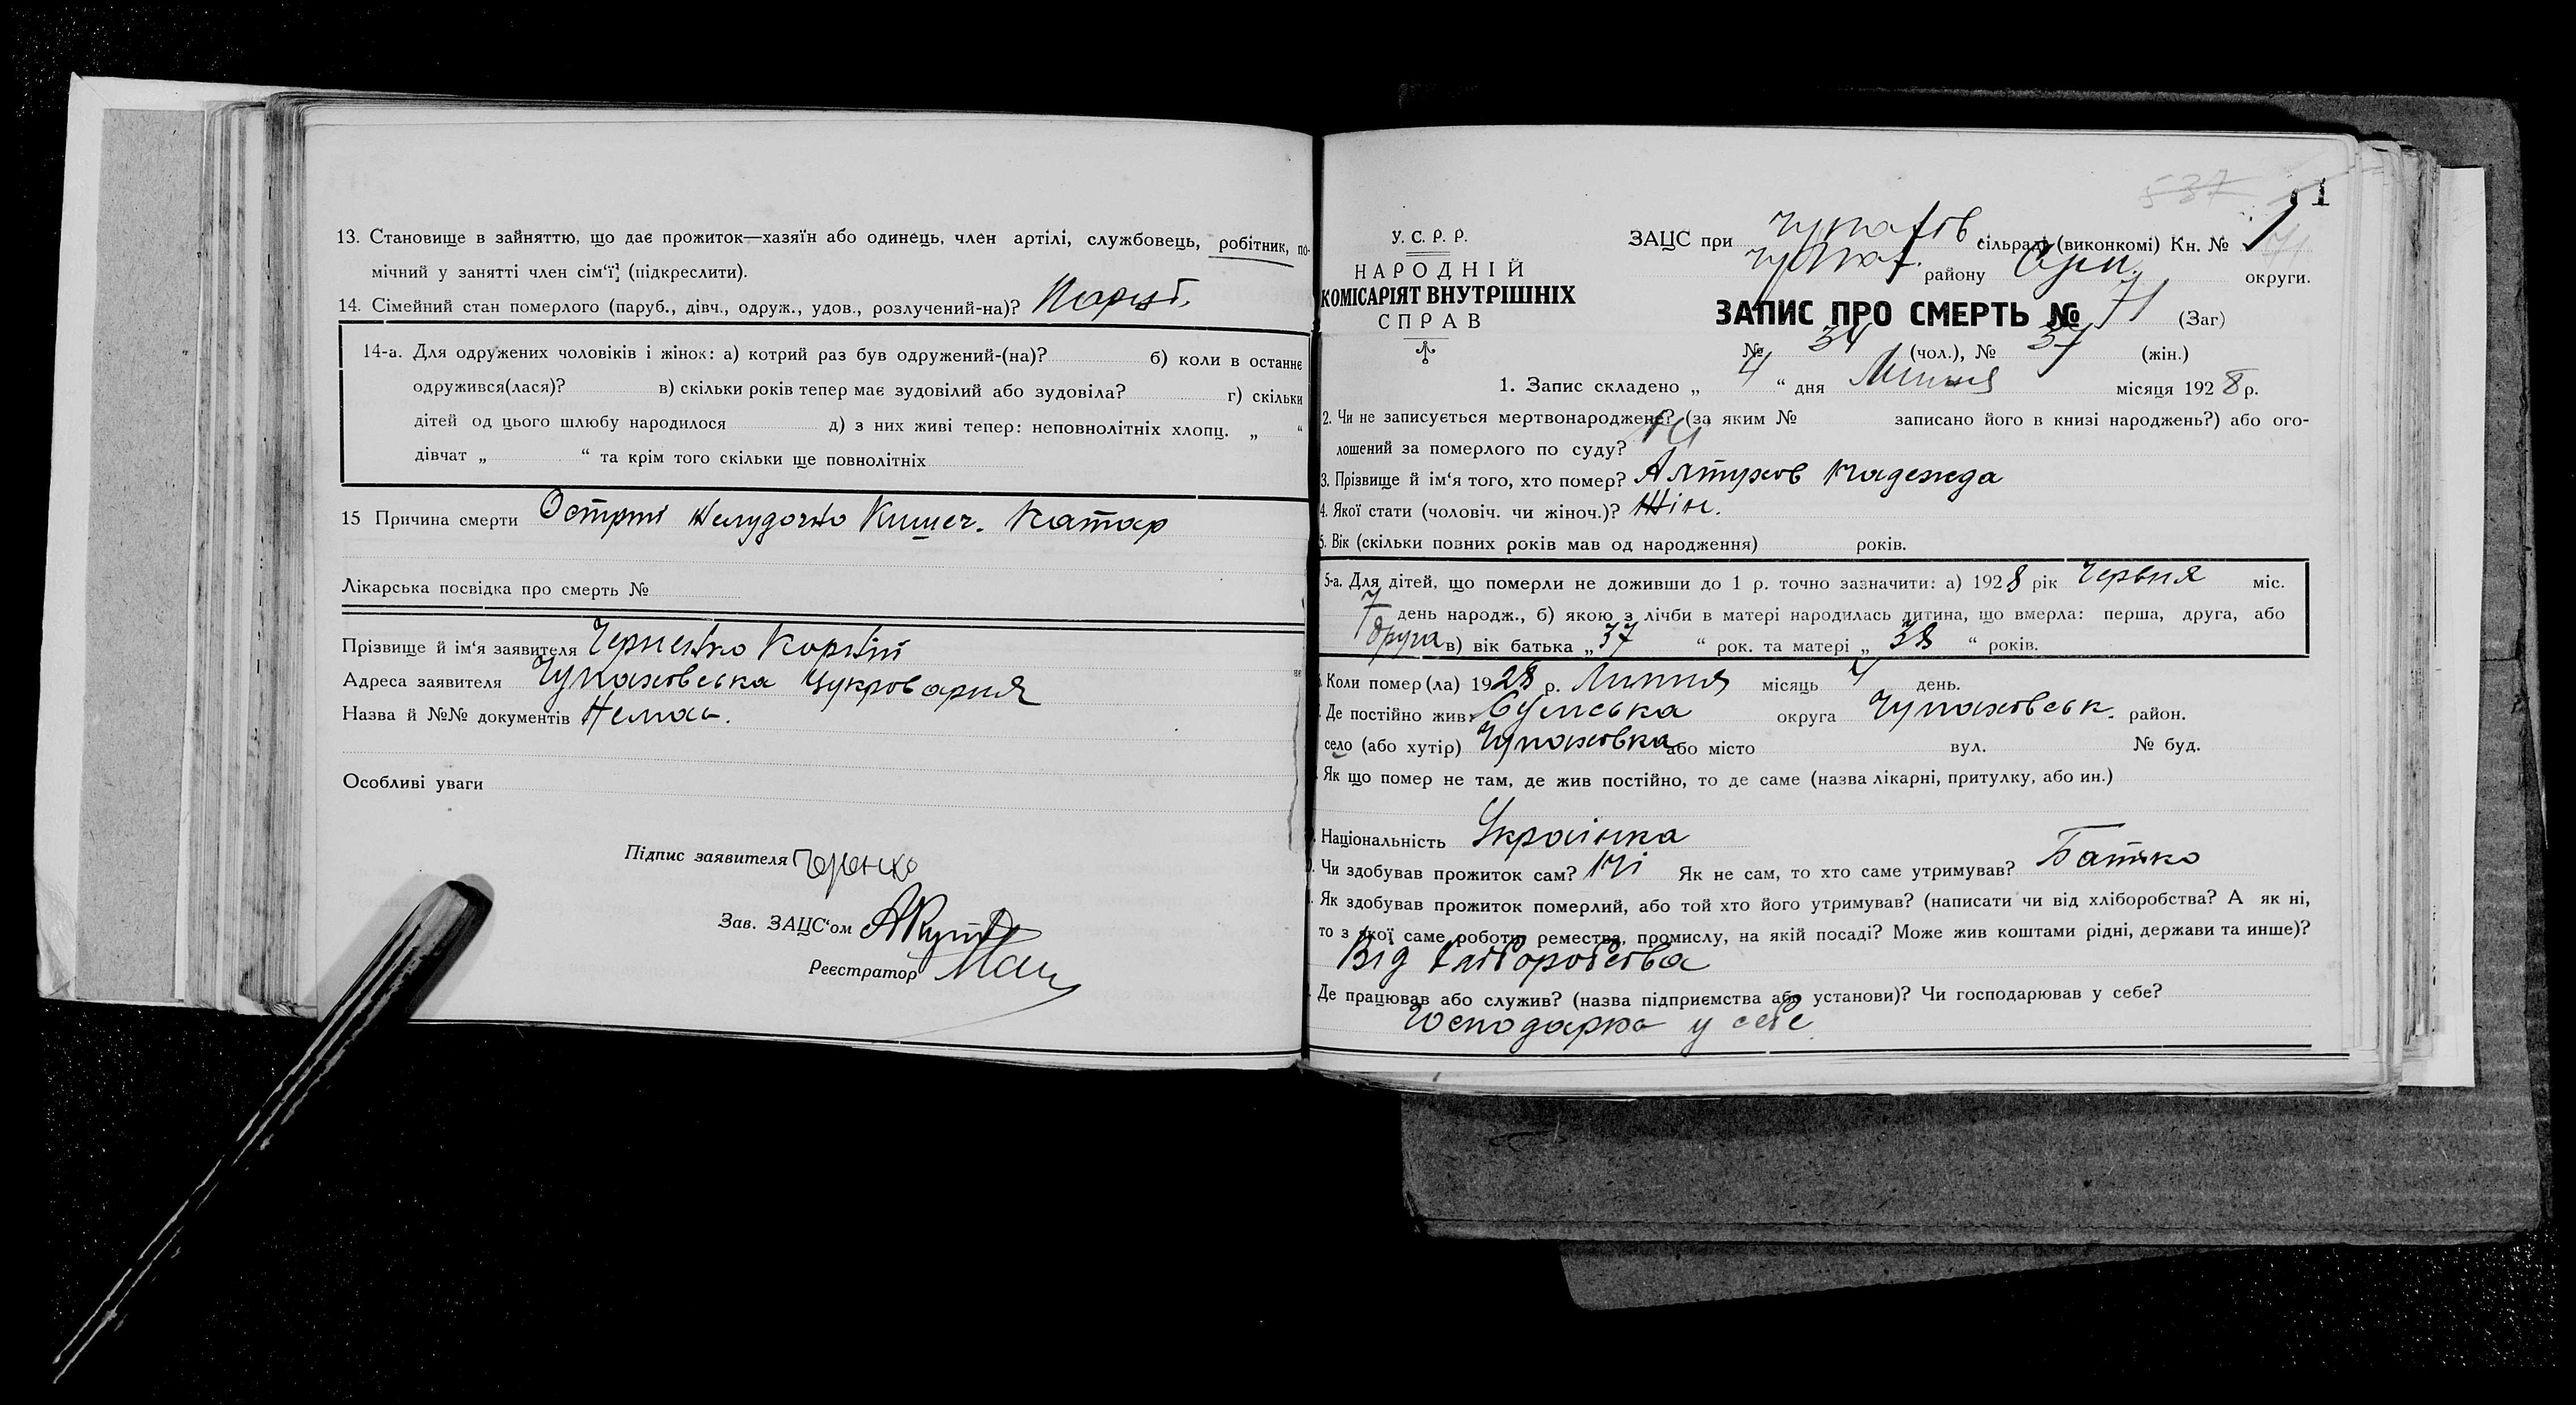 13. Становище в зайняттю, що дає прожиток—хазяїн або одинець, член артілі, службовець, робітник, по-
мічний у занятті член сім'ї (підкреслити).
14. Сімейний стан померлого (паруб., дівч., одруж., удов., розлучений-на)? Паруб.
14-а. Для одружених чоловіків і жінок: а) котрий раз був одружений-(на)? б) коли в останнє
одружився(лася)? в) скільки років тепер має зудовілий або зудовіла? г) скільки
дітей од цього шлюбу народилося д) з них живі тепер: неповнолітніх хлопц. „ “
дівчат „ “ та крім того скільки ще повнолітніх
15 Причина смерти Острий Желудочно Кишеч. Катар
Лікарська посвідка про смерть №
Прізвище й ім'я заявителя Черненко Корній
Адреса заявителя Чупаховська Цукроварня
Назва й №№ документів Немає.
Особливі уваги
Підпис заявителя
Зав. ЗАЦС'ом
Реєстратор
537
1
У. С. Р. Р.
НАРОДНІЙ
КОМІСАРІЯТ ВНУТРІШНІХ
СПРАВ
ЗАЦС при Чупахів сільраді (виконкомі) Кн. № 1
Чупах. району Сум. округи.
ЗАПИС ПРО СМЕРТЬ № 71 (Заг)
№ 34 (чол.), № 37 (жін.)
1. Запис складено „ 4 “ дня Липня місяця 1928 р.
2. Чи не записується мертвонароджене? (за яким № записано його в книзі народжень?) або ого-
лошений за померлого по суду? Ні
3. Прізвище й ім'я того, хто помер? Алтухов Надежда
4. Якої статі (чоловіч. чи жіноч.)? Жін.
5. Вік (скільки повних років мав од народження) років.
5-а. Для дітей, що померли не доживши до 1 р. точно зазначити: а) 1928 рік Червня міс.
7 день народж., б) якою з лічби в матері народилась дитина, що вмерла: перша, друга, або
друга в) вік батька „ 37 “ рок. та матері „ 38 “ років.
Коли помер(ла) 1928 р. Липня місяць 4 день.
Де постійно жив Сумська округа Чупаховськ. район.
село (або хутір) Чупаховка або місто вул. № буд.
Як що помер не там, де жив постійно, то де саме (назва лікарні, притулку, або ин.)
Національність Українка
Чи здобував прожиток сам? Ні Як не сам, то хто саме утримував? Батько
Як здобував прожиток померлий, або той хто його утримував? (написати чи від хліборобства? А як ні,
то з якої саме роботи, ремества, промислу, на якій посаді? Може жив коштами рідні, держави та инше)?
Від хліборобства
Де працював або служив? (назва підприємства або установи)? Чи господарював у себе?
Господарка у себе